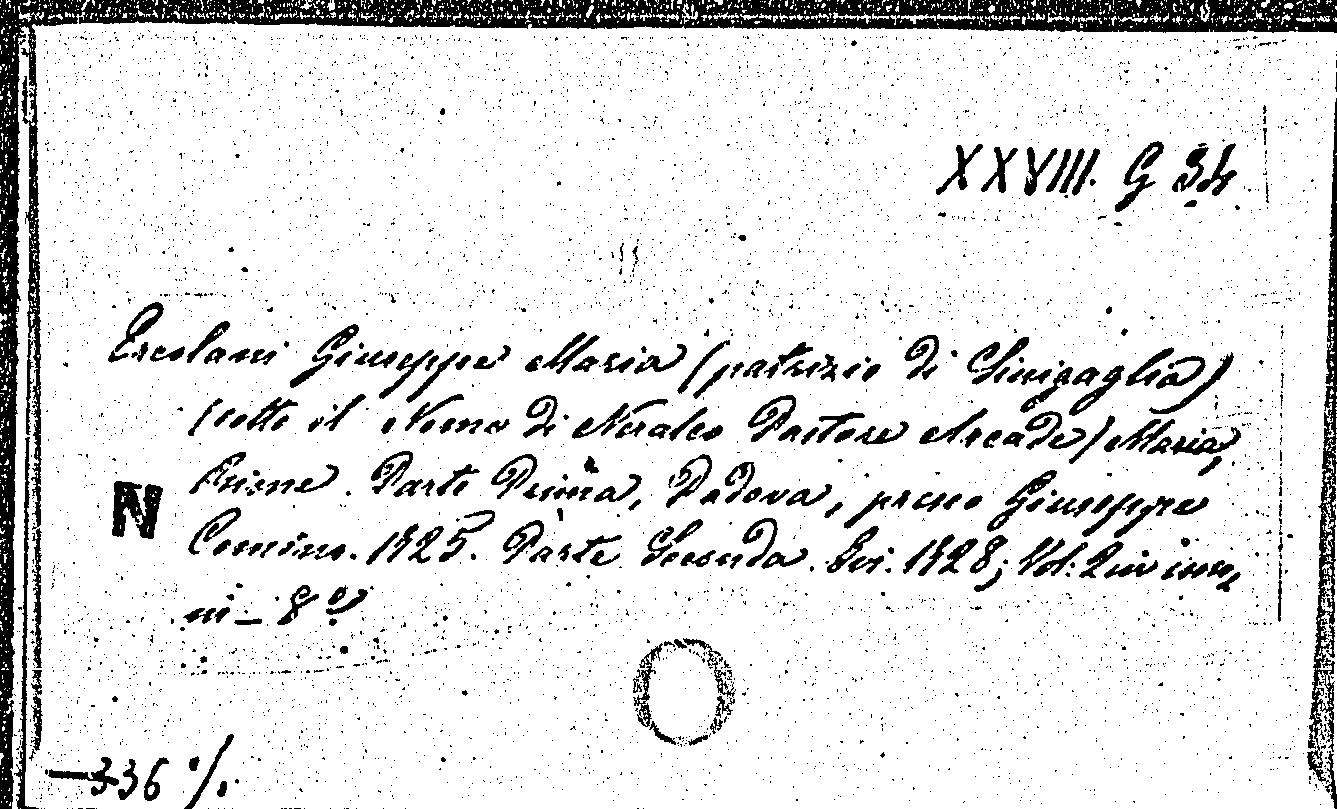 XXVIII. G 34
Ercolani Giuseppe Maria (patrizio di Sinigaglia)
(sotto il Nome di Neralco Pastore Arcade) Maria,
Rime. Parte Prima, Padova, presso Giuseppe
N
Comino. 1725. Parte Seconda. Ivi. 1728; Vol: 2 in
ni_ 8º
336 ·/.